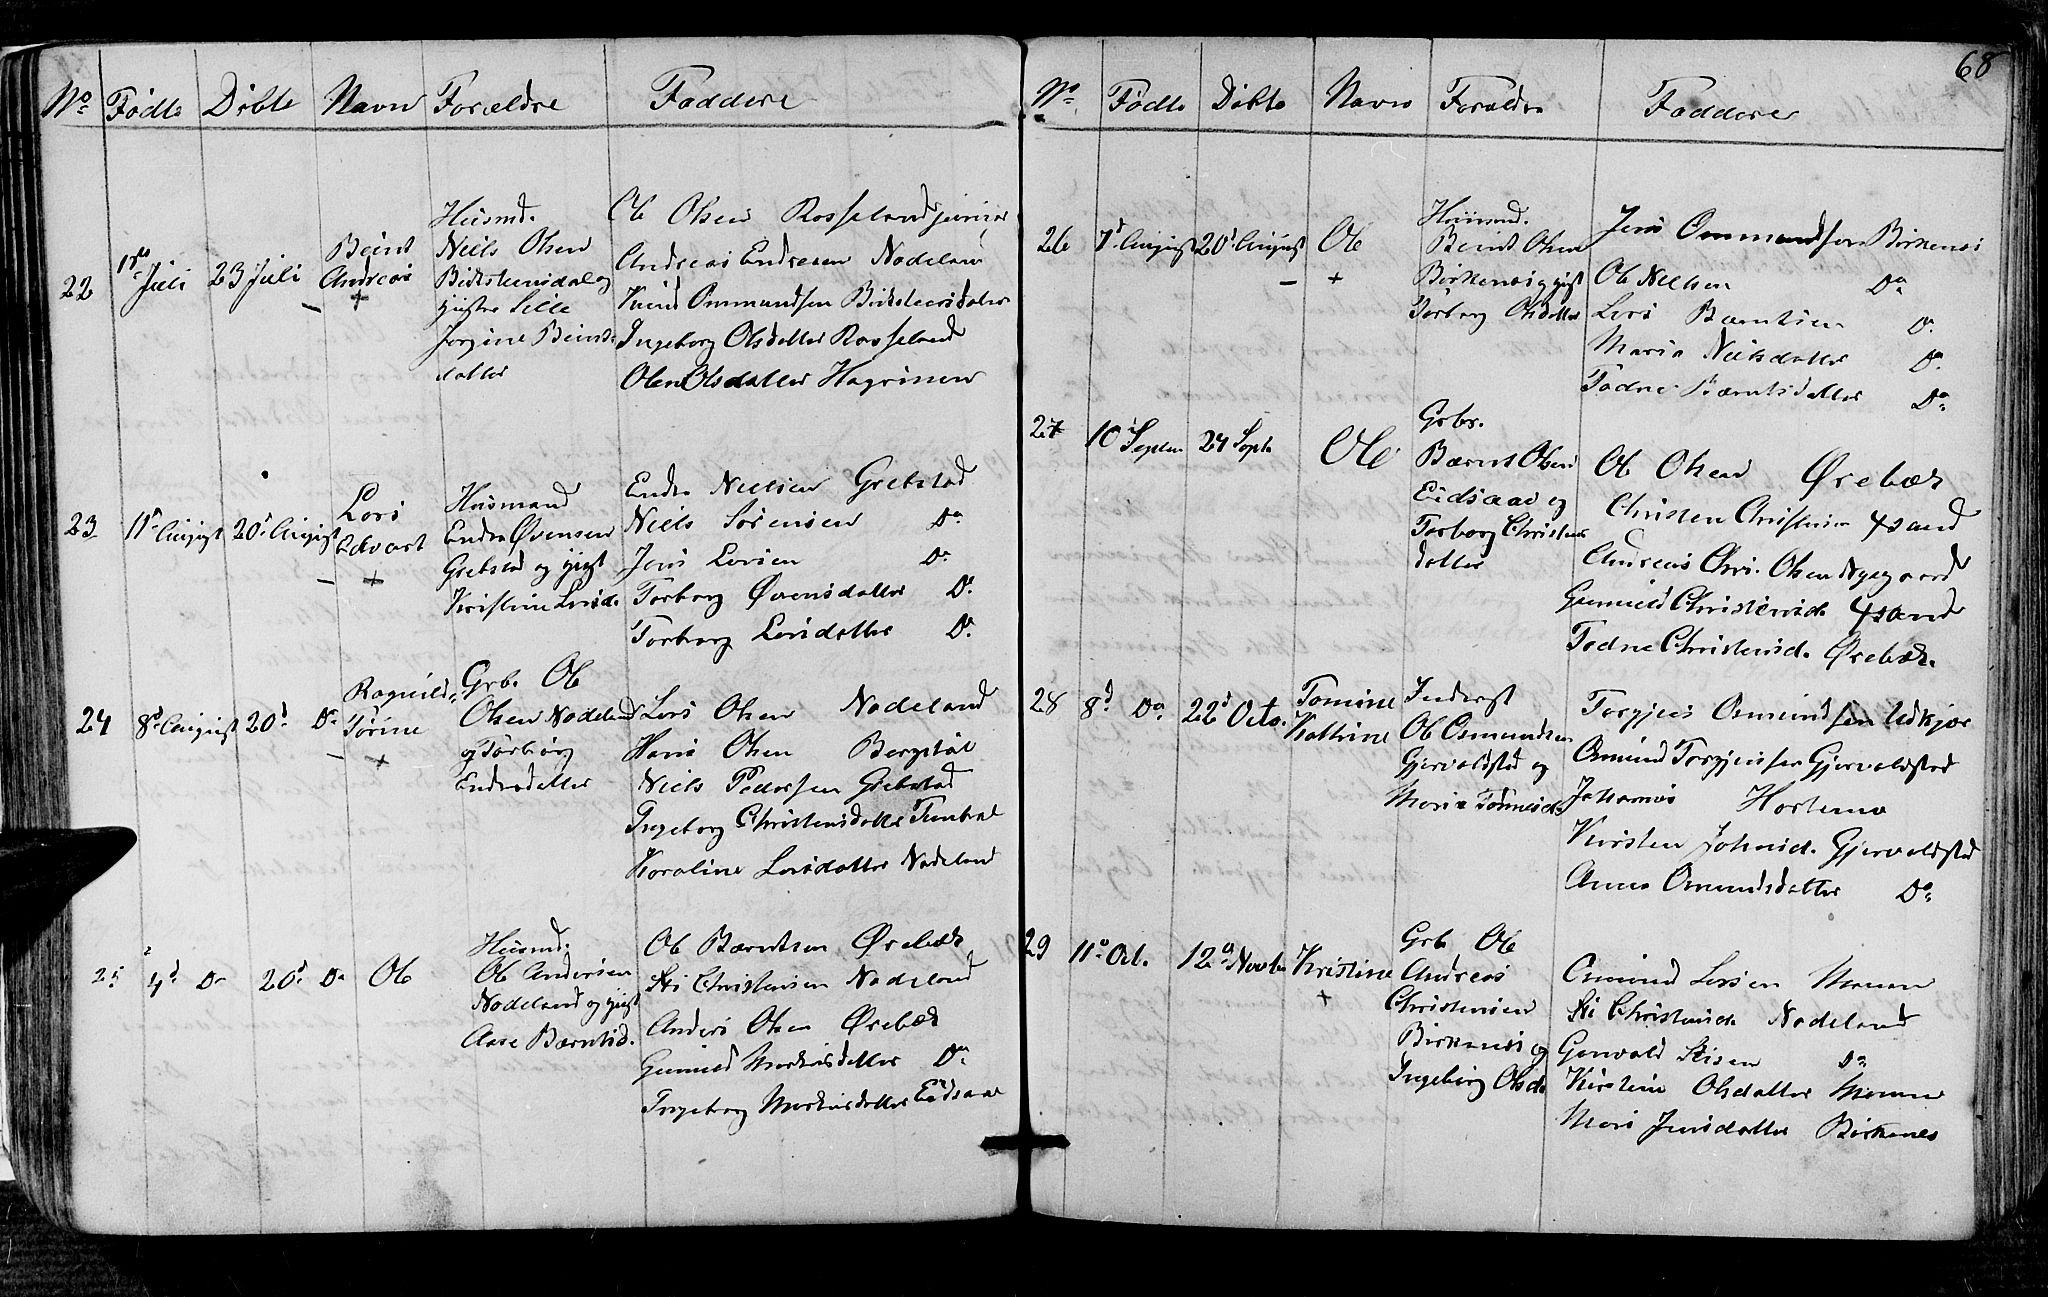 No Fødte Døbte Navn Forældre Faddere
22 1ste Juli 23 Juli Beint Andreas +
Husmd.
Niels Olsen
Birkeleensdal og
hustru Sille
Jorgine Beints
datter
Ole Olsen Rosseland
Andreas Endresen Nodeland
Knud Ommundsen
Ingeborg Olsdatter Rosseland
Olene Olsdatter Hagrinen
23 11te August 20de August Lars Edvart +
Husmand
Endre Øvensen
Grebstad og gigt
Kristine Larsd.
Endre Nielsen Grebstad
Niels Sørensen Do
Jens Larsen Do
Torborg Øvensdatter Do
Torborg Larsdatter Do
24 8d August 20d Do Ragnild Tørine +
Grb. Ole
Olsen Nodeland
og Torborg
Endresdatter
Lars Olsen Nodeland
Hans Olsen Bergstøl
Niels Pedersen Grebstad
Ingeborg Christensdatter Tunbal
Karaline Larsdatter Nodeland
25 4d Do 20d Do Ole
Husmd.
Ole Andersen
Nodeland og gigt
Aase Berntsd.
Ole Berntsen Ørebæk
Sti Christensen Nodeland
Anders Olsen Ørebæk
Gunnild Markusdatter Do
Ingeborg Markusdatter Eidsaae
68
No Fødte Døbte Navn Forældre Faddere
26 7d August 20d August Ole +
Husmd.
Beint Olsen
Birkenes og gigt
Torborg Olsdatter
Jens Ommundsen Birkenes
Ole Nielsen Do
Lars Berntsen Do
Maria Nielsdatter Do
Todne Berntsdatter Do
27 10 Septem 24 Septe Ole
Grbr.
Bærnt Olsen
Eidsaae og
Torborg Christens
datter
Ole Olsen Ørebæk
Christen Christensen
Andreas Chri. Olsen Nygaard
Gunnild Christensd.
Todne Christensd. Ørebæk.
28 8d Do 22d Octo. Tomine Kathrine
Inderst
Ole Osmundsen
Gjervoldstad og
Maria Tønnesd.
Torgjus Osmundsen Udkjør
Osmund Torgjusen Gjervoldstad
Johannes Hortemo
Kirsten Johnsd. Gjervoldstad
Anna Osmundsdatter Do
29 11d Oct. 12d Novbr Kristine +
Grb Ole
Andreas
Christensen
Birkenes og
Ingeborg Olsd.
Osmund Larsen Moum
Sti Christensen Nodeland
Gunvald Stisen Do
Kirstine Olsdatter Moum
Mari Jensdatter Birkenes